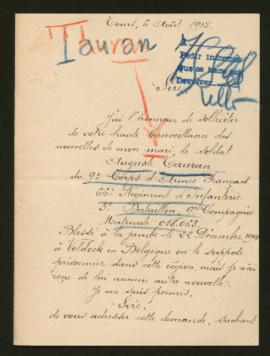 Tours, 6 Août 1915.
Tauran
Pedir informes
Sire
J'ai l'honneur de solliciter
de votre haute bienveillance des
nouvelles de mon mari, le soldat
Auguste Tauran
du 9e Corps d'Armée Français
66e Régiment d'Infanterie
3e Bataillon, 9e Compagnie
Matricule 018.063
Blessé à la jambe le 22 Décembre 1914
à Veldock en Belgique on le suppose
prisonnier dans cette région, mais je n'ai
reçu de lui aucune autre nouvelle.
Je me suis permis,
Sire,
de vous adresser cette demande, sachant